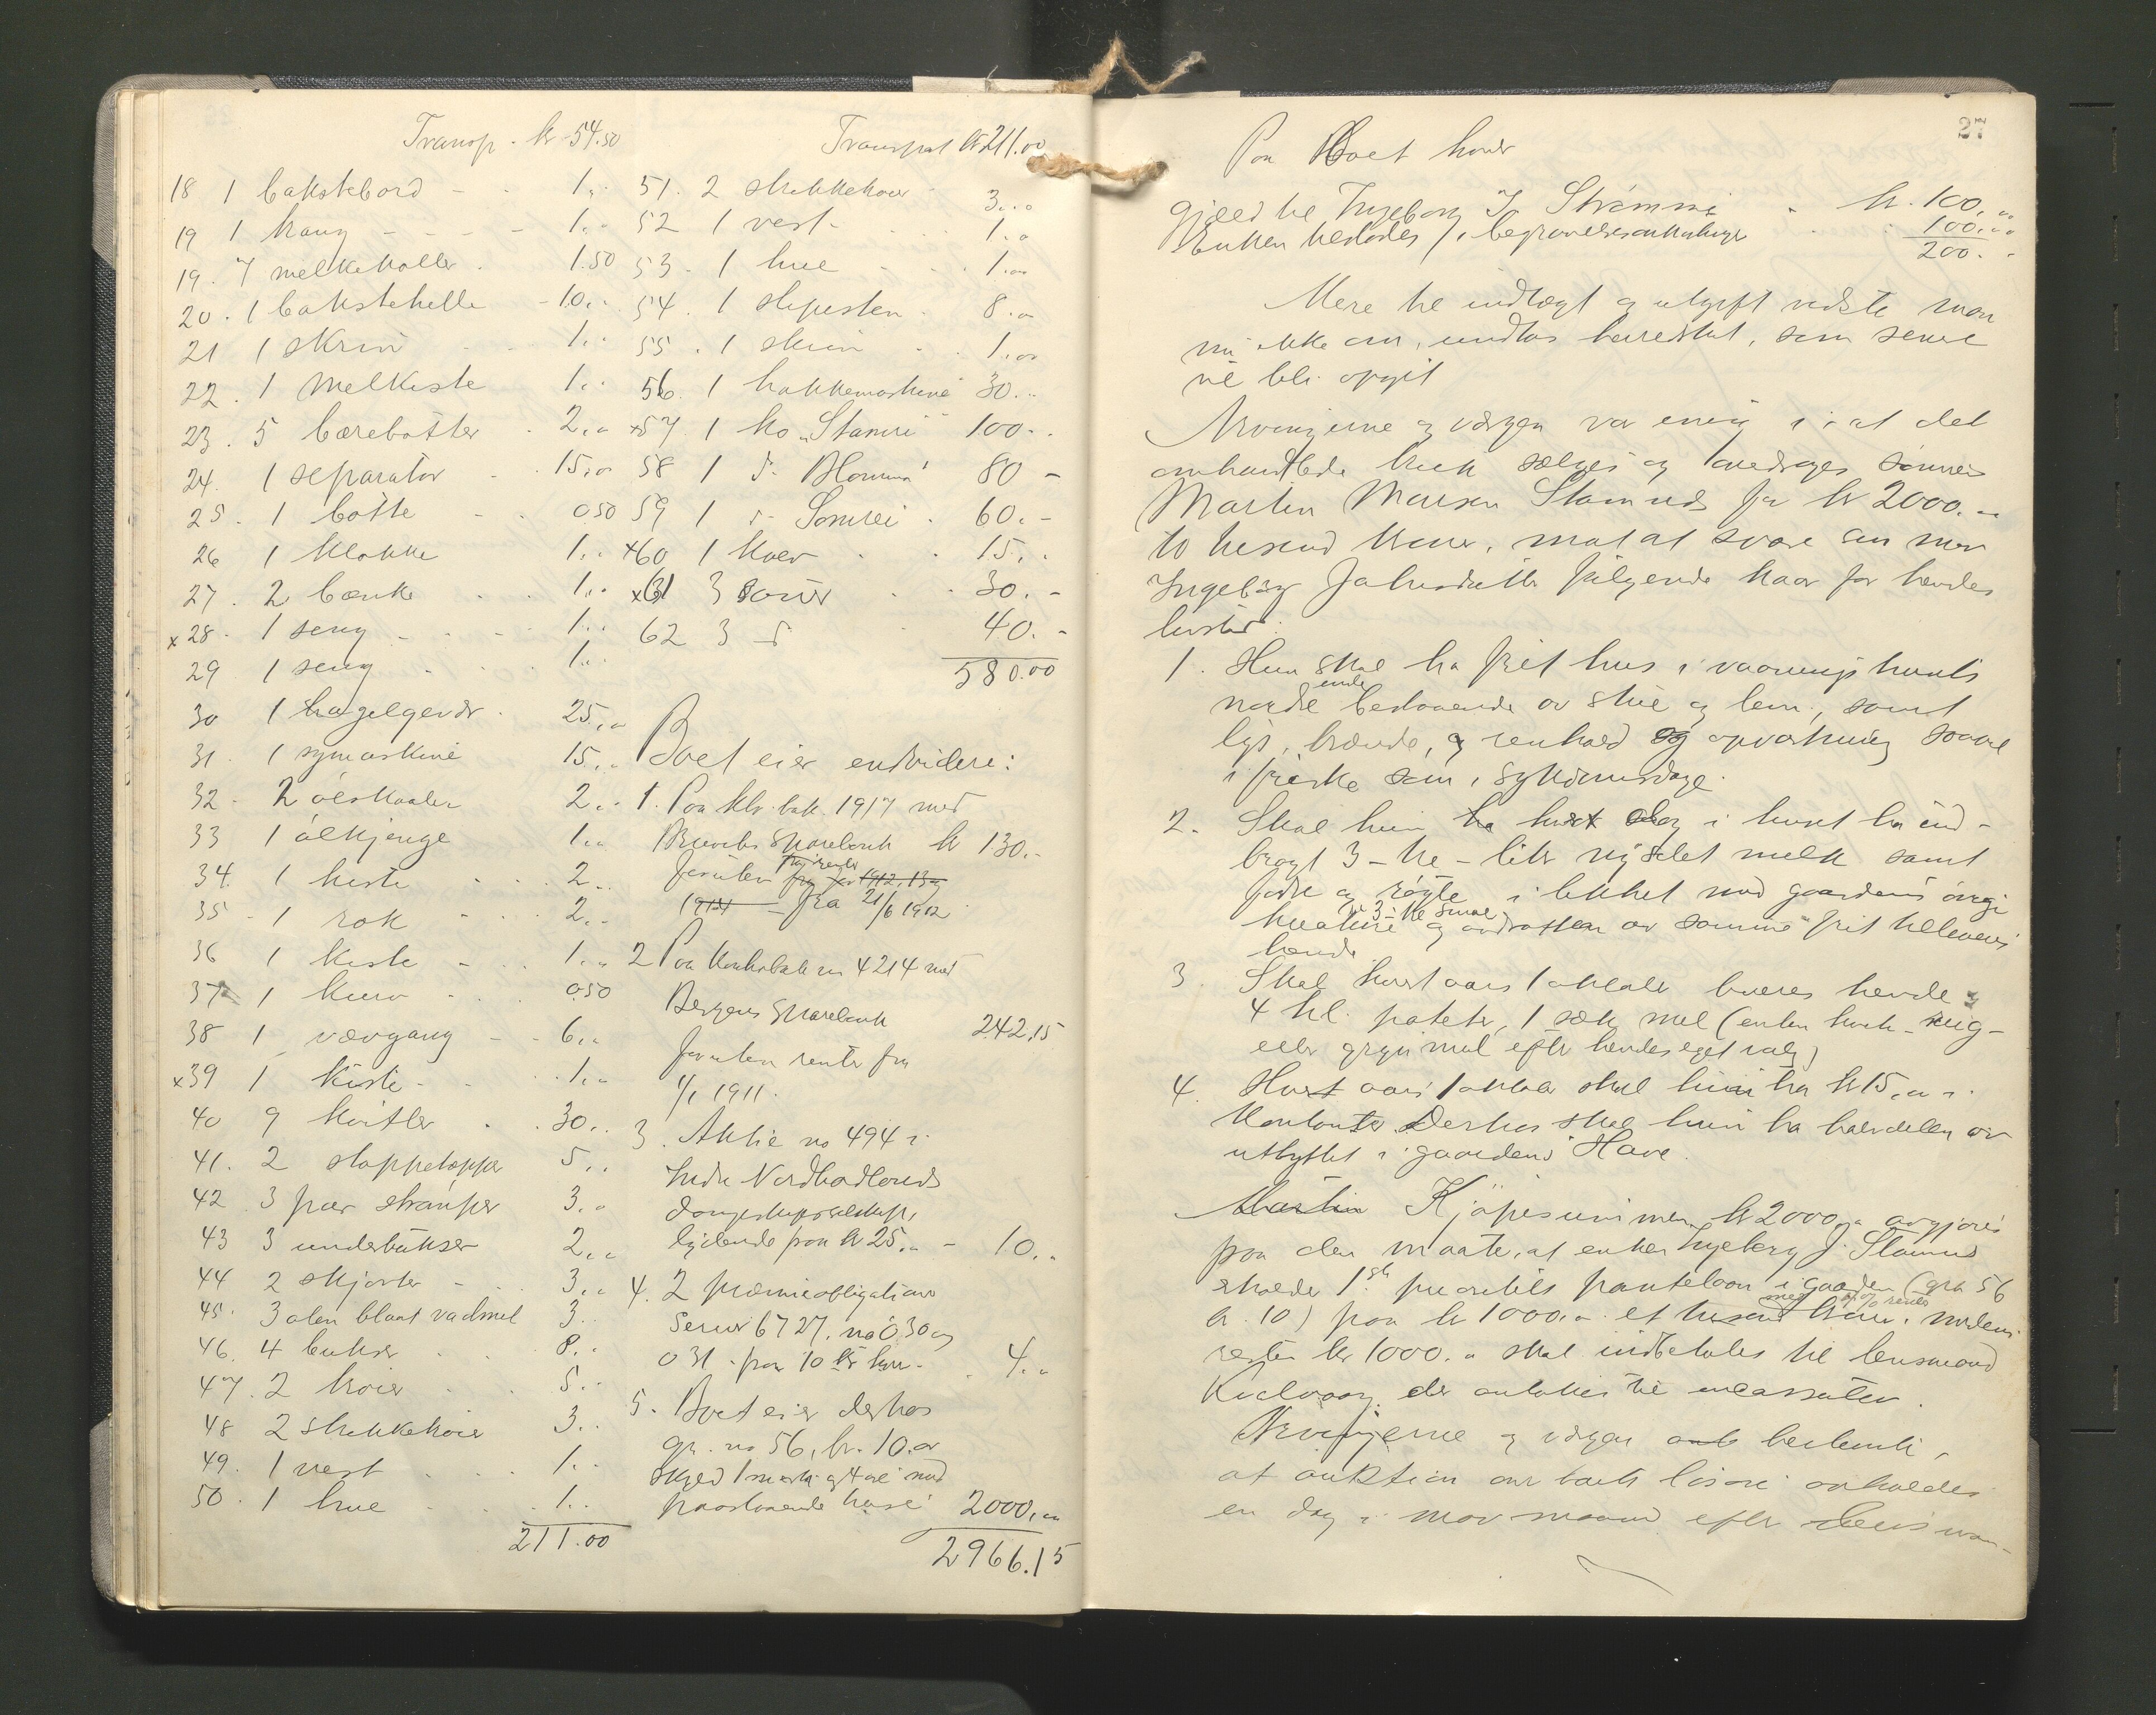 Transp. kr 54.50
18 1 bakstebord - - 1,"
19 1 krang - - - - 1,"
19. 7 melkekoller. 1.50
20. 1 bakstehelle - 10,"
21 1 skrin - - 1,"
22. 1 melkeste 1,"
23. 5 bærebøtter - 2,"
24. 1 separator - 15,"
25. 1 bøtte - - 0.50
26 1 klokke 1,"
27. 2 bænke - - 1,"
x 28. 1 seng - - - 1,"
29 1 seng - - 1,"
30 1 haglgevær - 25,"
31. 1 symaskine 15,"
32. 2 ølskaaler 2,"
33 1 ølkjenge 1,"
34. 1 kiste - - - 2,"
35 - 1 rok - - 2,"
36 1 kiste - - 1,"
37 1 kurv - - 0.50
38 1 vævgang - - 6,"
x 39 1 kiste - - 1,"
40 9 kvitler - 30,"
41. 2 stoppetepper 5,"
42 3 par strømper 3,"
43 3 underbukser 2,"
44 2 skjorter - 3,"
45. 3 alen blaat vadmel 3,"
46. 4 bukser - - 8,"
47. 2 trøier - - 5,"
48 2 strikketrøier 3,"
49. 1 vest - - 1,"
50. 1 hue - - 1,"
211.00
Transport kr 211.00
51. 2 strikketrøier 3,"
52 1 vest - - 1,"
53 - 1 hue - - 1,"
54. 1 slipesten - 8,"
55. 1 skrin - - 1,"
56. 1 hakkemaskine 30,"
x57 1 ko "Stamri" 100 -
58 1 do Blomma 80 -
59 1 do Somrei - 60. -
x60 1 kalv - - 15,"
x61 3 sauer - - 30. -
62 3 do 40. -
580.00
Boet eier endvidere:
1. Paa klr. bok 1917 med
Bruvik Sparebank kr 130. -
foruten renter
fra 21/6 1912
2 Paa kontrabok no 4214 med
Bergens Sparebank 242.15
foruten renter fra
1/1 1911.
3. Aktie no 494 i
Indre Nordhordlands
Dampskipsselskap,
lydende paa kr 25," - 10,"
4. 2 præmieobligationer
Serie 6727, no 030 og
031 - paa 10 kr hver - 4,"
5. Boet eier derhos
gr. no 56, br. 10 av
skyld 1 mark og 4 øre med
paastaaende huse 2000,"
2966.15
27
Paa Boet hviler
Gjæld til Ingeborg J. Strømme - kr. 100,"
Enken tilstodes i begravelsesomkostninger 100,"
200. -
Mere til indtægt og utgift vidste man
nu ikke om, undtas barselskat, som senere
vil bli opgit
Arvingerne og værgen var enig i at det
omhandlede bruk sælges og overdrages sønnen
Martin Monsen Stamnes for kr 2000,"
to tusend kroner, mot at svare sin mor
Ingeborg Johnsdatter følgende kaar for hendes
livstid:
1. Hun skal ha frit hus i vaaningshusets
nordre ende bestaaende av stue og lem, samt
lys, brænde, og renhold og opvartning saavel
i friske som i sykdomsdage.
2. Skal hun hver dag i huset ha ind-
bragt 3 - tre - liter nysilet melk samt
fodre og røgte i likhet med gaardens øvrige
kreature 3 - tre smale og avdraatten av samme frit tilleveres
hende.
3. Skal hvert aars 1 oktober leveres hende
4 hl. poteter, 1 sæk mel (enten hvete - rug -
eller grynmel efter hendes eget valg)
4. Hvert aars 1 oktober skal hun ha kr 15," i
kontanter. Derhos skal hun ha halvdelen av
utbyttet i gaardens Have.
Martin Kjøpesummen kr 2000," avgjøres
paa den maate, at enken Ingeborg J. Stamnes
erholder 1ste prioritets panteloan i gaarden (gr. 56
br. 10) paa kr 1000," et tusend kroner, medens
resten kr 1000," skal indbetales til lensmand
Kvalvaag, der antakes til incassator.
Arvingerne og værgen bestemte,
at auktion over boets løsøre avholdes
en dag i mai maaned efter